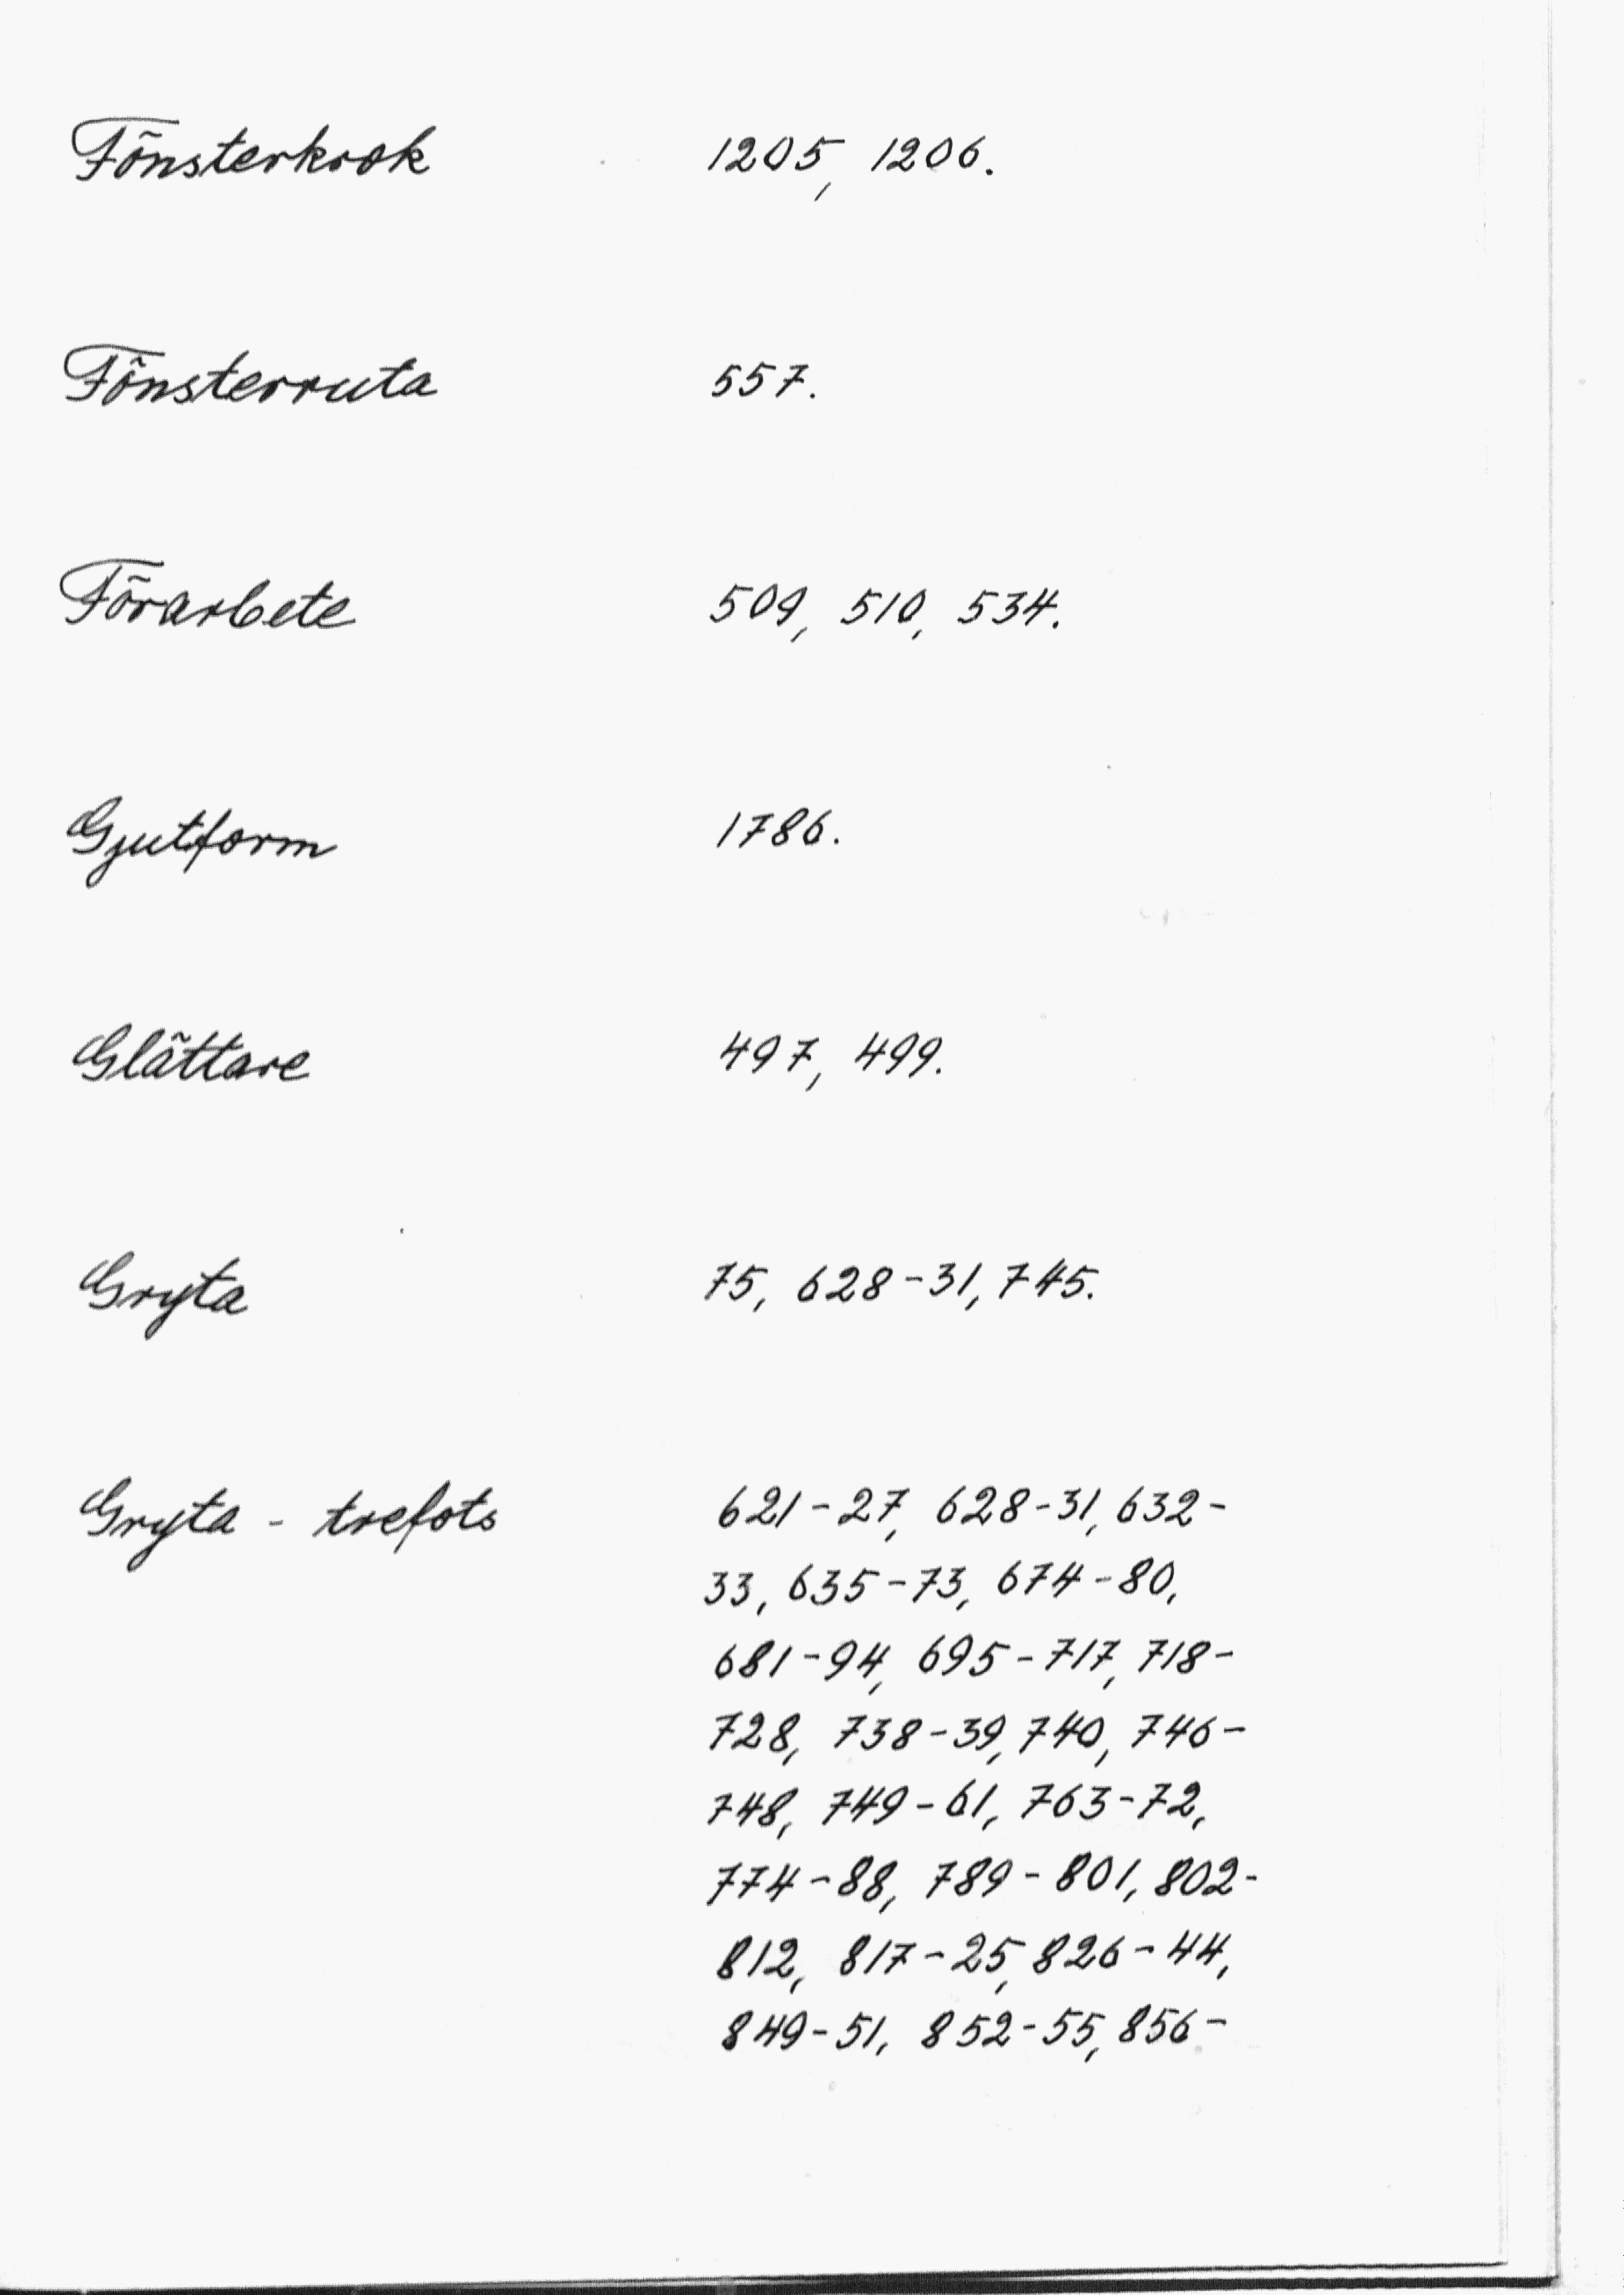 Fönsterkrok 1205, 1206.
Fönsterruta 557.
Förarbete 509, 510, 534.
Gjutform 1786.
Glättare 497, 499.
Gryta 75, 628-31, 745.
Gryta - trefots 621-27, 628-31, 632-
33, 635-73, 674-80,
681-94, 695-717, 718-
728, 738-39, 740, 746-
748, 749-61, 763-72,
774-88, 789-801, 802-
812, 817-25, 826-44,
849-51, 852-55, 856-